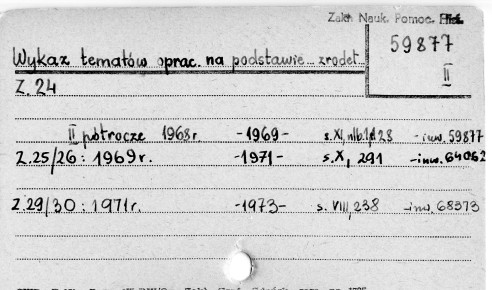 Zakł. Nauk. Pomoc. Hist.
59877
II
Wykaz tematów oprac. na podstawie... źródeł...
Z. 24
II półrocze 1968 r. -1969- s. XI, nlb. 1, 128 -inw. 59877
Z. 25/26 : 1969 r. -1971- s. X, 291 -inw. 64062
Z. 29/30 : 1971 r. -1973- s. VIII, 238 -inw. 68373